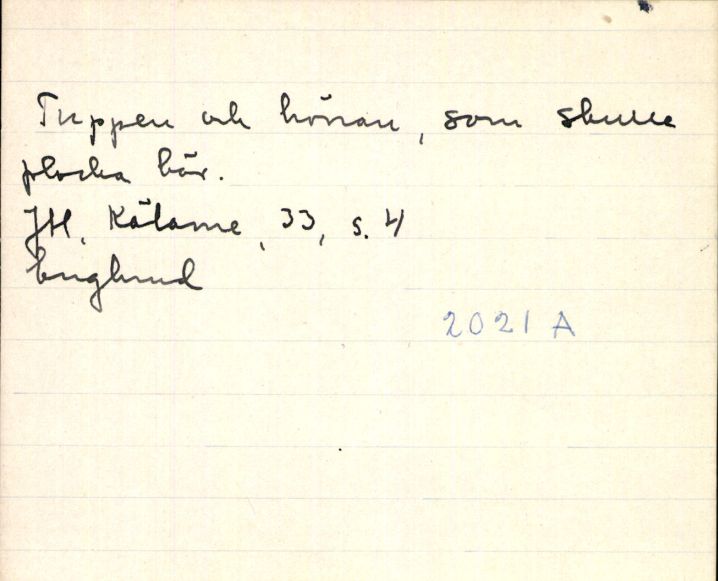 Tuppen och hönan, som skulle
plocka bär.
JH, Kälarne, 33, s. 4
Englund
2021 A